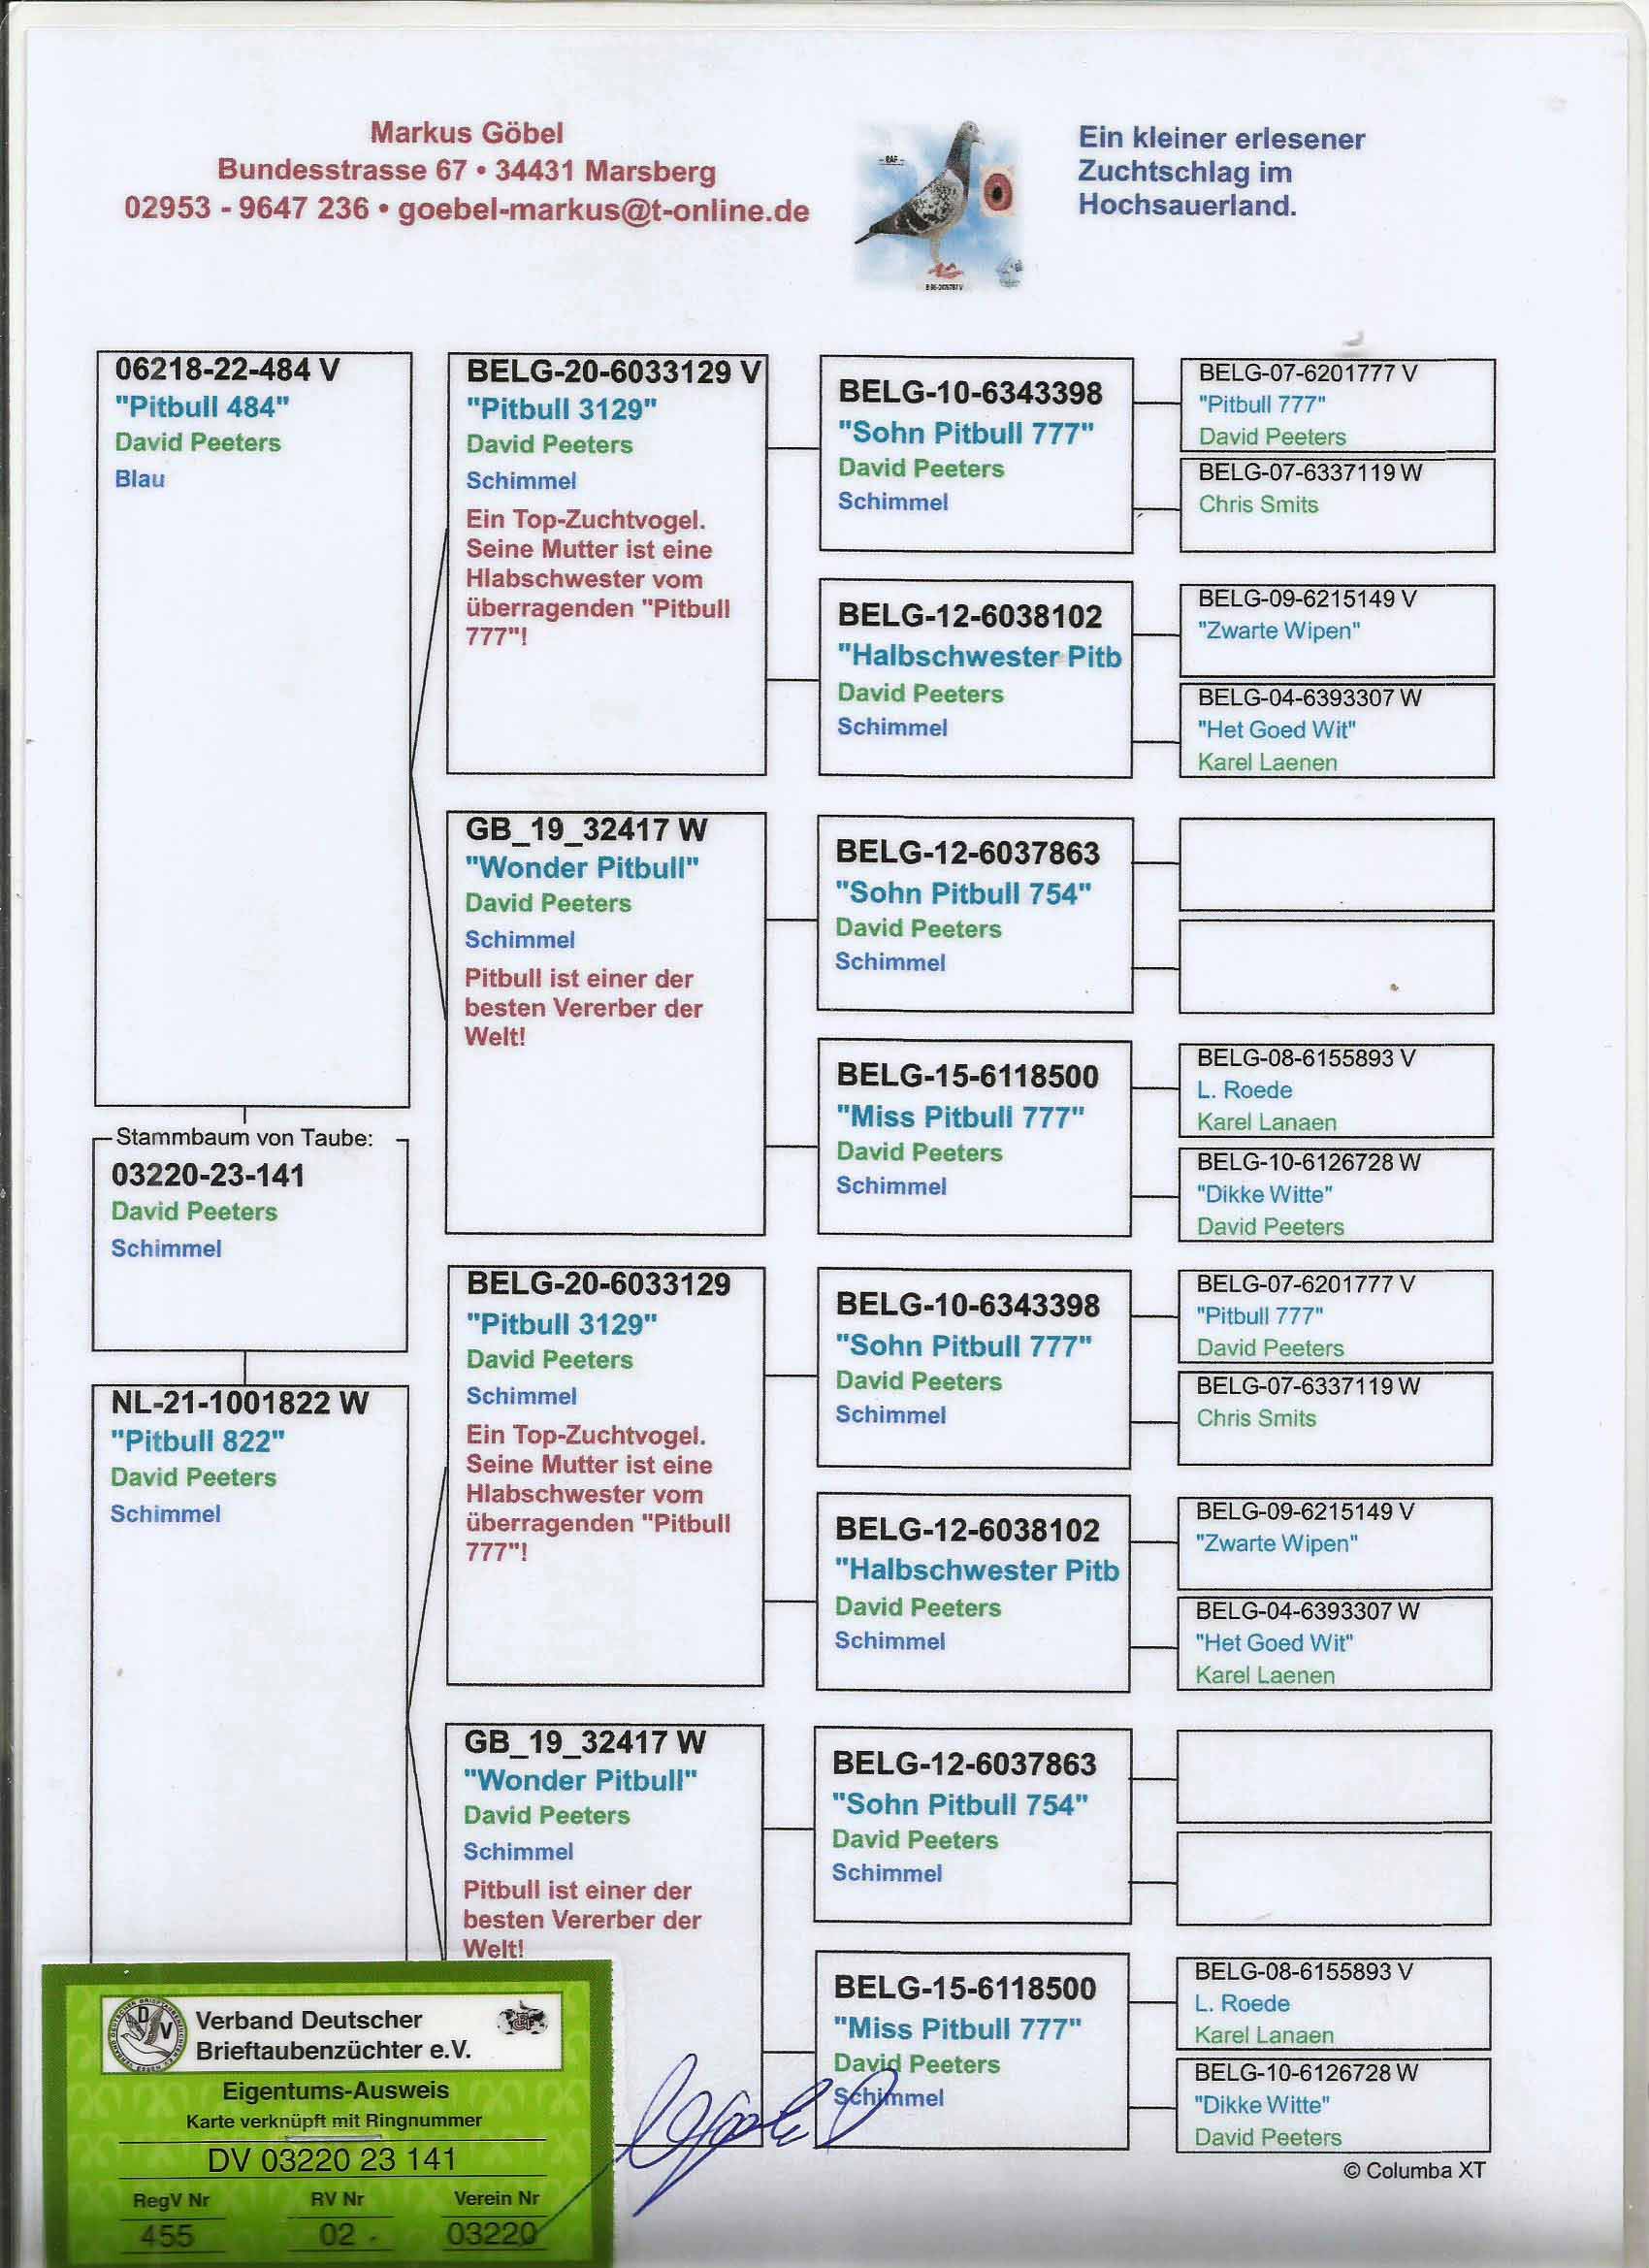 Markus Göbel
Bundesstrasse 67 • 34431 Marsberg
02953 - 9647 236 • goebel-markus@t-online.de
Ein kleiner erlesener
Zuchtschlag im
Hochsauerland.
06218-22-484 V
"Pitbull 484"
David Peeters
Blau
Stammbaum von Taube:
03220-23-141
David Peeters
Schimmel
NL-21-1001822 W
"Pitbull 822"
David Peeters
Schimmel
BELG-20-6033129 V
"Pitbull 3129"
David Peeters
Schimmel
Ein Top-Zuchtvogel.
Seine Mutter ist eine
Hlabschwester vom
überragenden "Pitbull
777"!
GB_19_32417 W
"Wonder Pitbull"
David Peeters
Schimmel
Pitbull ist einer der
besten Vererber der
Welt!
BELG-20-6033129
"Pitbull 3129"
David Peeters
Schimmel
Ein Top-Zuchtvogel.
Seine Mutter ist eine
Hlabschwester vom
überragenden "Pitbull
777"!
GB_19_32417 W
"Wonder Pitbull"
David Peeters
Schimmel
Pitbull ist einer der
besten Vererber der
Welt!
BELG-10-6343398
"Sohn Pitbull 777"
David Peeters
Schimmel
BELG-12-6038102
"Halbschwester Pitb
David Peeters
Schimmel
BELG-12-6037863
"Sohn Pitbull 754"
David Peeters
Schimmel
BELG-15-6118500
"Miss Pitbull 777"
David Peeters
Schimmel
BELG-10-6343398
"Sohn Pitbull 777"
David Peeters
Schimmel
BELG-12-6038102
"Halbschwester Pitb
David Peeters
Schimmel
BELG-12-6037863
"Sohn Pitbull 754"
David Peeters
Schimmel
BELG-15-6118500
"Miss Pitbull 777"
David Peeters
Schimmel
BELG-07-6201777 V
"Pitbull 777"
David Peeters
BELG-07-6337119 W
Chris Smits
BELG-09-6215149 V
"Zwarte Wipen"
BELG-04-6393307 W
"Het Goed Wit"
Karel Laenen
BELG-08-6155893 V
L. Roede
Karel Lanaen
BELG-10-6126728 W
"Dikke Witte"
David Peeters
BELG-07-6201777 V
"Pitbull 777"
David Peeters
BELG-07-6337119 W
Chris Smits
BELG-09-6215149 V
"Zwarte Wipen"
BELG-04-6393307 W
"Het Goed Wit"
Karel Laenen
BELG-08-6155893 V
L. Roede
Karel Lanaen
BELG-10-6126728 W
"Dikke Witte"
David Peeters
© Columba XT
Verband Deutscher
Brieftaubenzüchter e.V.
Eigentums-Ausweis
Karte verknüpft mit Ringnummer
DV 03220 23 141
RegV Nr RV Nr Verein Nr
455 02 - 03220